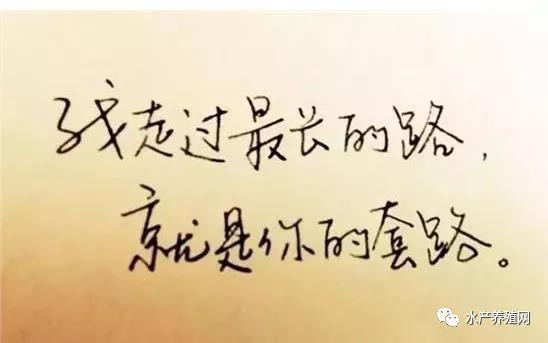 我走过最长的路，
就是你的套路。
水产养殖网